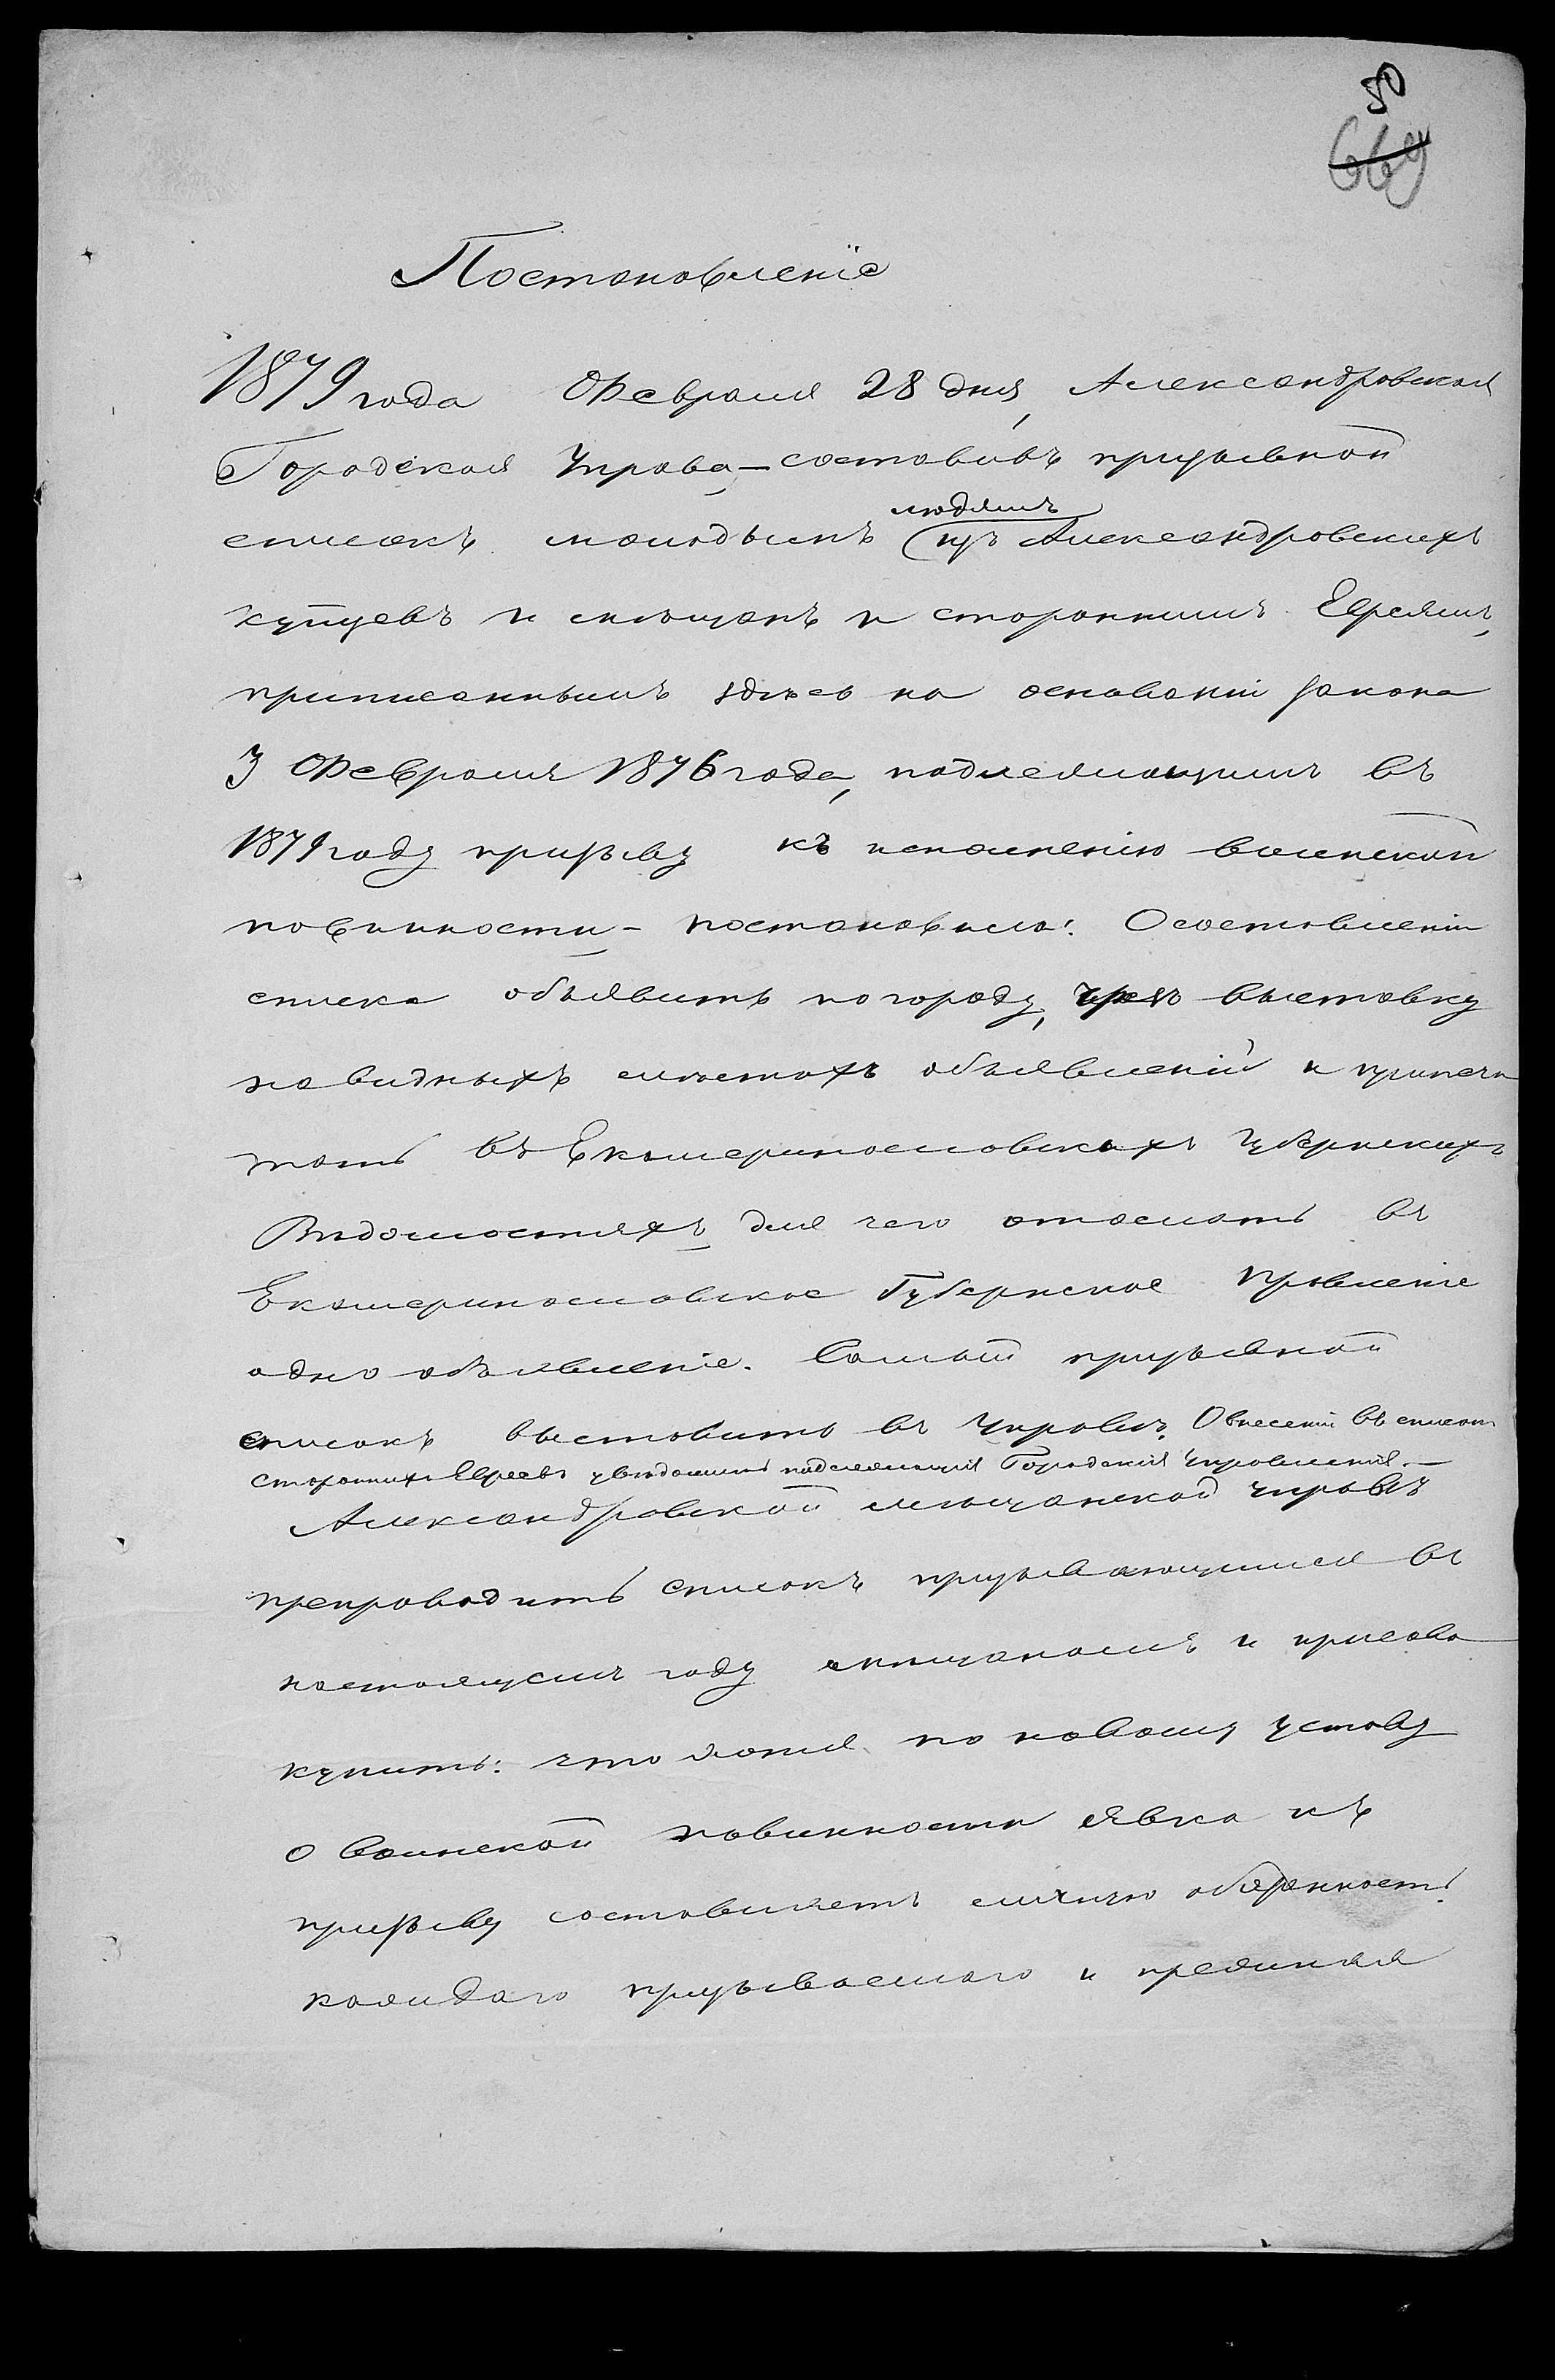 50
669
Постановленіе
1879 года Февраля 28 дня, Александровская
Городская Управа, – составивъ призывной
списокъ молодымъ людямъ изъ Александровскихъ
купцевъ и мѣщанъ и стороннимъ Евреямъ,
приписаннымъ здѣсь на основаніи закона
3 Февраля 1876 года, подлежащимъ въ
1879 году призыву къ исполненію воинской
повинности, – постановила: О составленіи
списка объявить по городу, чрезъ выставку
на видныхъ мѣстахъ объявленій и припеча
тать въ Екатеринославскихъ Губернскихъ
Вѣдомостяхъ, для чего отослать въ
Екатеринославское Губернское Правленіе
одно объявленіе. Самый призывной
списокъ выставить въ Управѣ. О внесеніи въ списокъ
стороннихъ Евреевъ увѣдомить подлежащія Городскія Управленія. –
Александровской мѣщанской управѣ
препроводить списокъ призывающимся въ
настоящемъ году мѣщанамъ и присово
купить: что хотя по новому уставу
о воинской повинности явка къ
призыву составляетъ личную обязанность
каждаго призываемаго и прежняя